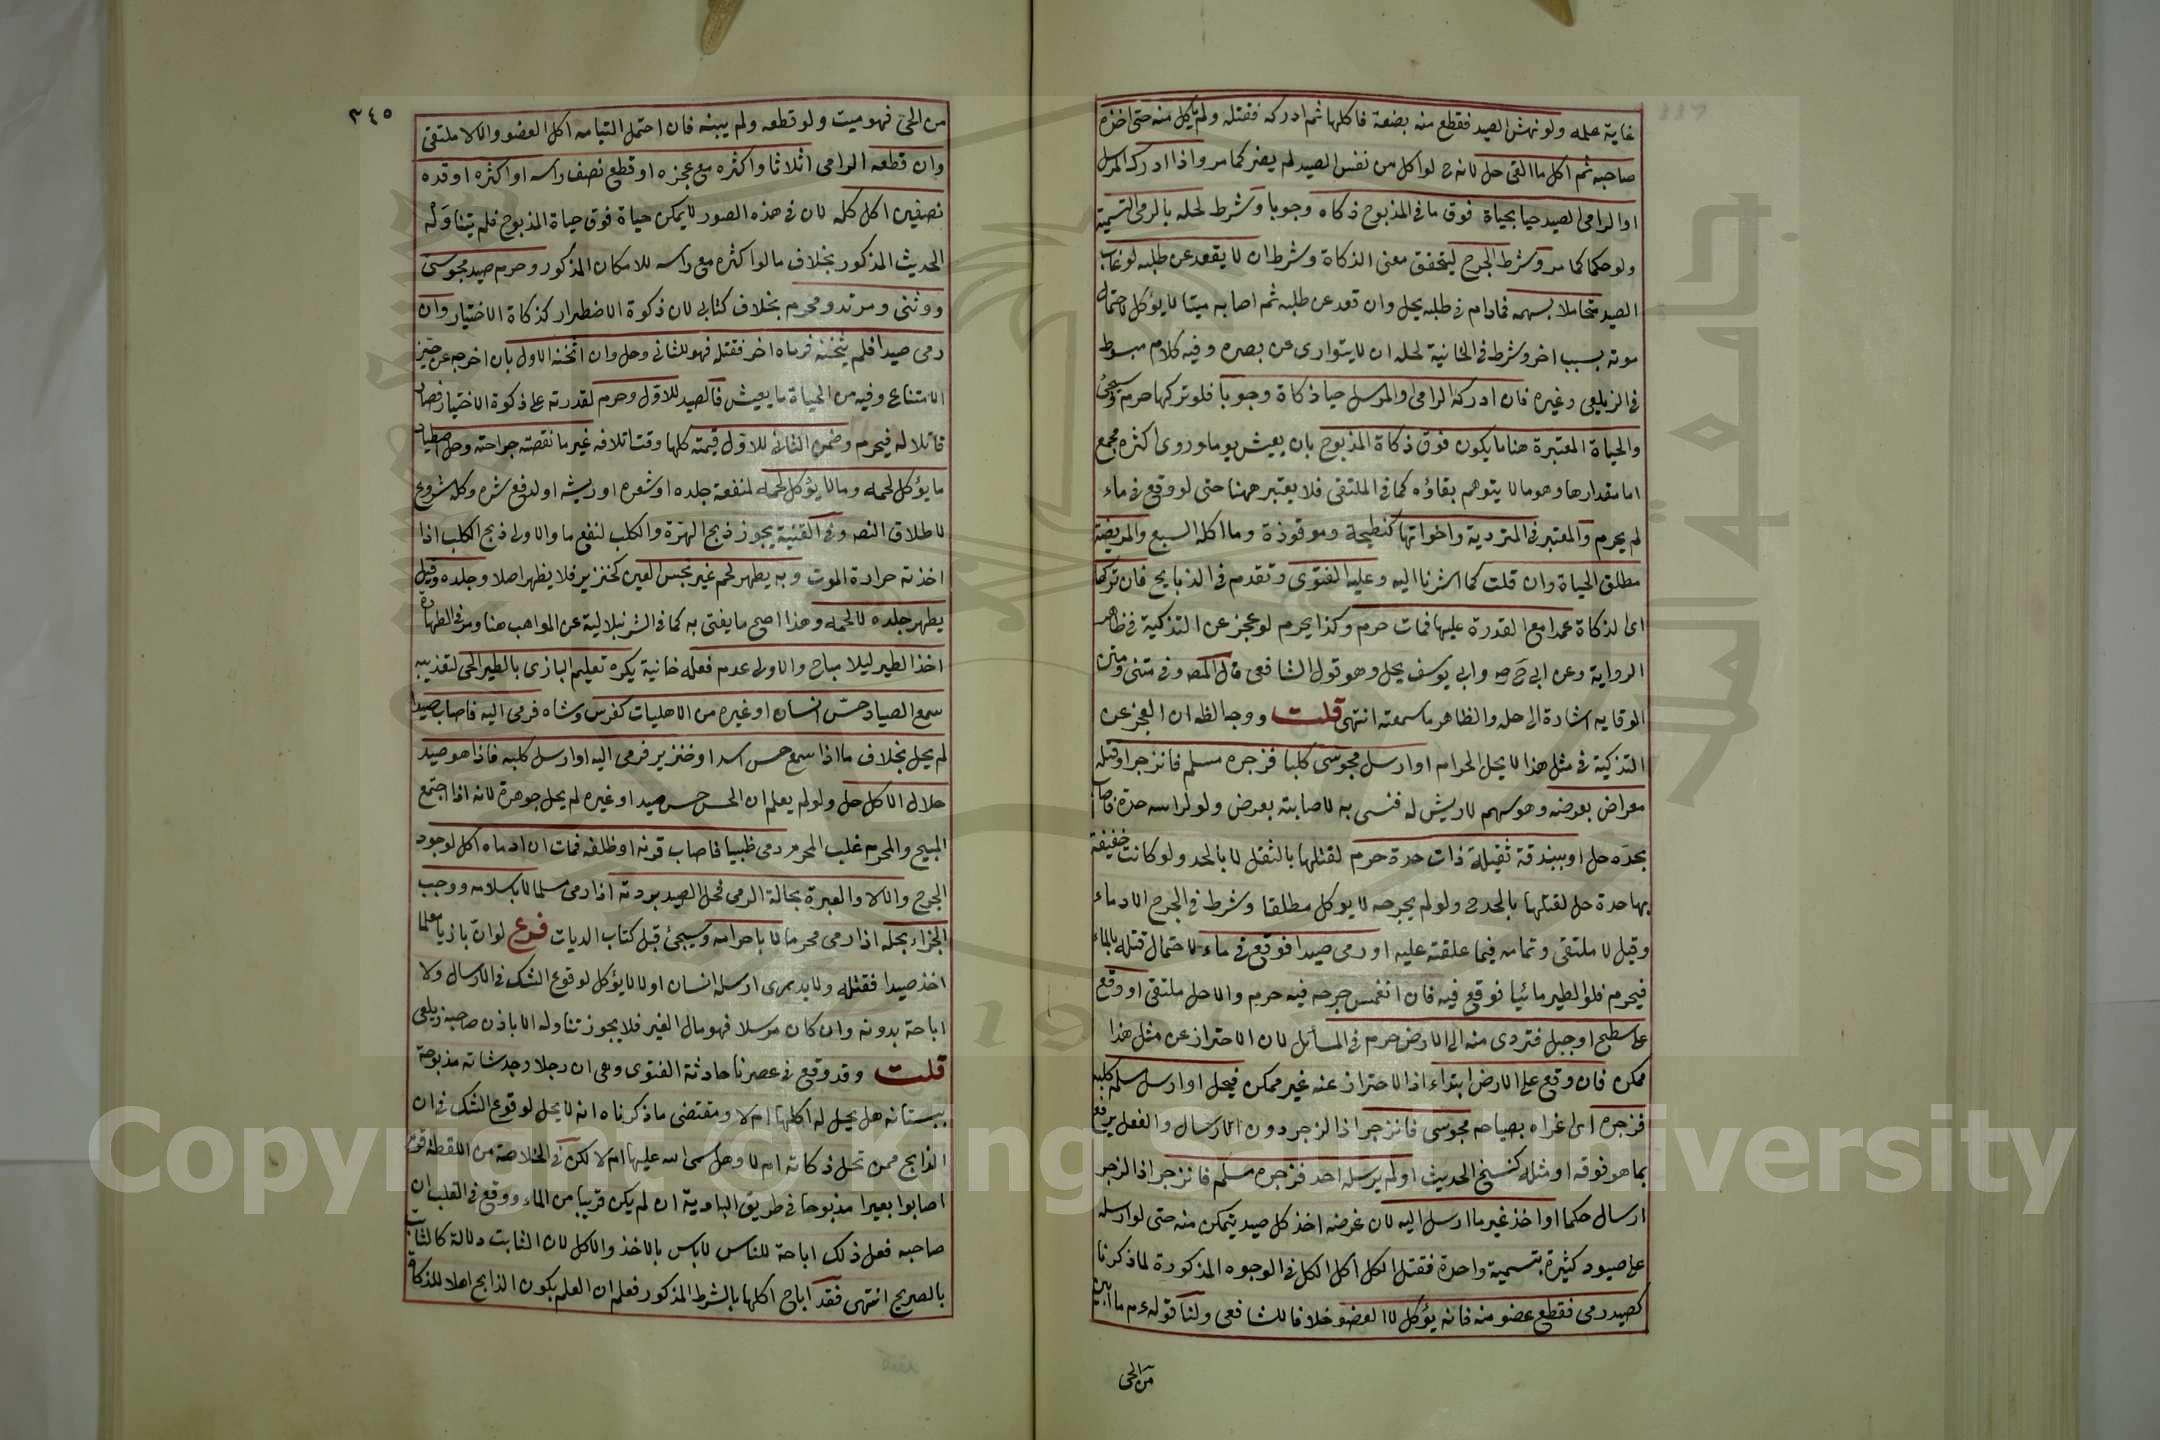 غاية علمه ولو نهش الصيد فقطع منه بضعة فاكلها ثم ادركه فقتله ولم ياكل منه حتى اخذه
صاحبه ثم اكل ما القى حل لانه ح لو اكل من نفس الصيد لم يضر كما مر واذا ادركه المرسل
او الرامى الصيد حيا بحياة فوق ما فى المذبوح ذكاه وجوبا وشرط لحله بالرمى التسمية
ولو حكما كما مر وشرط الجرح ليتحقق معنى الذكاة وشرط ان لا يقعد عن طلبه لو غاب
الصيد متحاملا بسهمه فمادام فى طلبه يحل وان قعد عن طلبه ثم اصابه ميتا لا يؤكل لاحتمال
موته بسبب اخر وشرط فى الخانية لحله ان لا يتوارى عن بصره وفيه كلام مبسوط
فى الزيلعى وغيره فان ادركه الرامى والمرسل حيا ذكاة وجوبا فلو تركها حرم وسيجئ
والحياة المعتبرة هنا ما يكون فوق ذكاة المذبوح بان يعيش يوما وروى اكثره مجمع
اما مقدارها وهو ما لا يتوهم بقاؤه كما فى الملتقى فلا يعتبر ههنا حتى لو وقع فى ماء
لم يحرم والمعتبر فى المتردية واخواتها كنطيحة وموقوذة وما اكله السبع والمريضة
مطلق الحياة وان قلت كما اشرنا اليه وعليه الفتوى وتقدم فى الذبايح فان تركها
اى الذكاة عمدا مع القدرة عليها فمات حرم وكذا يحرم لو عجز عن التذكية فى ظاهر
الرواية وعن ابي ح وابي يوسف يحل وهو قول الشافعى قال المص وفى متنى ومتن
الوقايه اشارة الى حله والظاهر ما سمعته انتهى قلت ووجه الظه ان العجز عن
التذكية فى مثل هذا لا يحل الحرام او ارسل مجوسى كلبا فزجره مسلم فانزجر او قتله
معراض بعرضه وهو سهم لا ريش له فسمى به لاصابته بعرض ولو لراسه حدة فاصاب
بحده حل او ببندقة ثقيلة ذات حدة حرم لقتلها بالثقل لا بالحد ولو كانت خفيفة
بها حدة حل لقتلها بالحد ح ولو لم يجرحه لا يوكل مطلقا وشرط فى الجرح الادماء
وقيل لا ملتقى وتمامه فيما علقته عليه او رمى صيدا فوقع فى ماء لاحتمال قتله بالماء
فيحرم فلو الطير مائيا فوقع فيه فان انغمس جرحه فيه حرم والا حل ملتقى او وقع
على سطح او جبل فتردى منه الى الارض حرم فى المسائل لان الاحتراز عن مثل هذا
ممكن فان وقع على الارض ابتداء اذ الاحتراز عنه غير ممكن فيحل او ارسل مسلم كلبه
فزجره اى اغراه بصياحه مجوسى فانزجر اذ الزجر دون الارسال والفعل يرفع
بما هو فوقه او مثله كنسخ الحديث او لم يرسله احد فزجره مسلم فانزجر اذ الزجر
ارسال حكما او اخذ غير ما ارسل اليه لان غرضه اخذ كل صيد يتمكن منه حتى لو ارسله
على صيود كثيرة بتسمية واحدة فقتل الكل اكل الكل فى الوجوه المذكورة لما ذكرنا
كصيد رمى فقطع عضو منه فانه يؤكل لا العضو خلافا للشافعى ولنا قوله عم ما ابين
من الحى
٣٤٥
من الحى فهو ميت ولو قطعه ولم يبنه فان احتمل التيامه اكل العضو والا لا ملتقى
وان قطعه الرامى اثلاثا واكثره مع عجزه او قطع نصف راسه او اكثره او قده
نصفين اكل كله لان فى هذه الصور لا يمكن حياة فوق حياة المذبوح فلم يتناوله
الحديث المذكور بخلاف ما لو اكثره مع راسه للامكان المذكور وحرم صيد مجوسى
ووثنى ومرتد ومحرم بخلاف كتابى لان ذكوة الاضطرار كذكاة الاختيار وان
رمى صيدا فلم يثخنه فرماه اخر فقتله فهو للثانى وحل وان اثخنه الاول بان اخرجه عن حيز
الامتناع وفيه من الحياة ما يعيش فالصيد للاول وحرم لقدرته على ذكوة الاختيار فصار
قاتلا له فيحرم وضمن الثانى للاول قيمته كلها وقت اتلافه غير ما نقصته جراحته وحل اصطياد
ما يؤكل لحمه وما لا يؤكل لحمه لمنفعة جلده او شعره او ريشه او لدفع شره وكله مشروع
لاطلاق النص وفى القنية يجوز ذبح الهرة والكلب لنفع ما والاولى ذبح الكلب اذا
اخذته حرارة الموت وبه يطهر لحم غير نجس العين كخنزير فلا يطهر اصلا وجلده وقيل
يطهر جلده لا لحمه وهذا اصح ما يفتى به كما فى الشرنبلالية عن المواهب هنا ومر فى الطهارة
اخذ الطير ليلا مباح والاولى عدم فعله خانية يكره تعليم البازى بالطير الحى لتعذيبه
سمع الصياد حس انسان او غيره من الاهليات كفرس وشاه فرمى اليه فاصاب صيدا
لم يحل بخلاف ما اذا سمع حس اسد او خنزير فرمى اليه او ارسل كلبه فاذا هو صيد
حلال الاكل حل ولو لم يعلم ان الحس حس صيد او غيره لم يحل جوهرة لانه اذا اجتمع
المبيح والمحرم غلب المحرم رمى ظبيا فاصاب قرنه او ظلفه فمات ان ادماه اكل لوجود
الجرح والا لا والعبرة بحالة الرمى فحل الصيد بردته اذا رمى مسلما لا باسلامه ووجب
الجزاء بحله اذا رمى محرما لا باحرامه وسيجئ قبل كتاب الديات فرع لو ان بازيا معلما
اخذ صيدا فقتله ولا يدرى ارسله انسان او لا لا يؤكل لوقوع الشك فى الارسال ولا
اباحة بدونه وان كان مرسلا فهو مال الغير فلا يجوز تناوله الا باذن صاحبه زيلعى
قلت وقد وقع فى عصرنا حادثة الفتوى وهى ان رجلا وجد شاته مذبوحة
ببستانه هل يحل له اكلها ام لا ومقتضى ما ذكرناه انه لا يحل لوقوع الشك فى ان
الذابح ممن تحل ذكاته ام لا وهل سمى الله عليها ام لا لكن فى الخلاصة من اللقطة قوم
اصابوا بعيرا مذبوحا فى طريق البادية ان لم يكن قريبا من الماء ووقع فى القلب ان
صاحبه فعل ذلك اباحة للناس لا باس بالاخذ والاكل لان الثابت دلالة كالثابت
بالصريح انتهى فقد اباح اكلها بالشرط المذكور فعلم ان العلم بكون الذابح اهلا للذكاة
Copyright © King Saud University